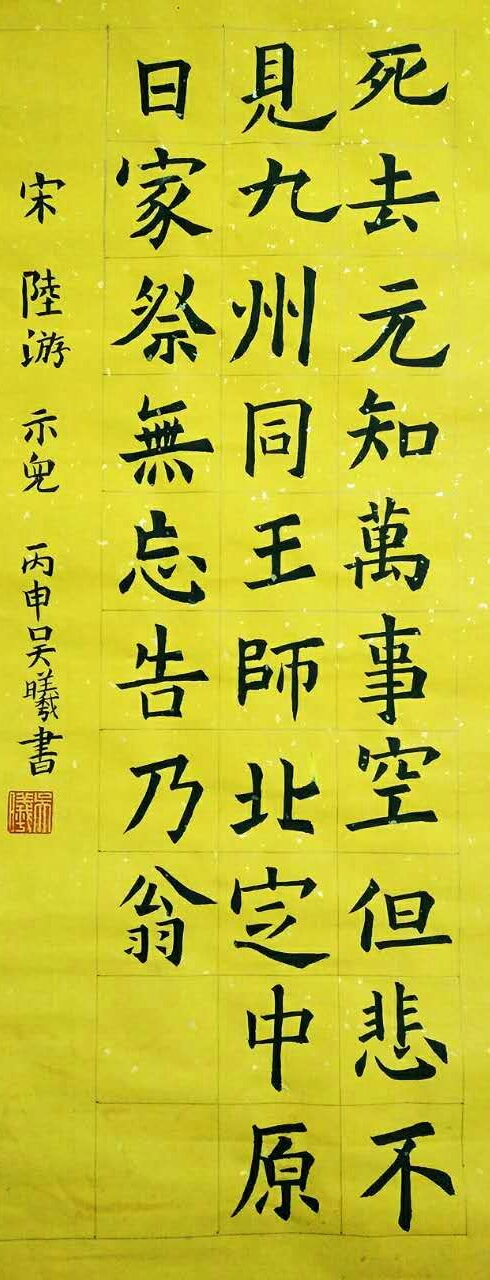 死去元知萬事空但悲不
見九州同王師北定中原
日家祭無忘告乃翁
宋 陸游 示兒 丙申吴曦書
吴曦